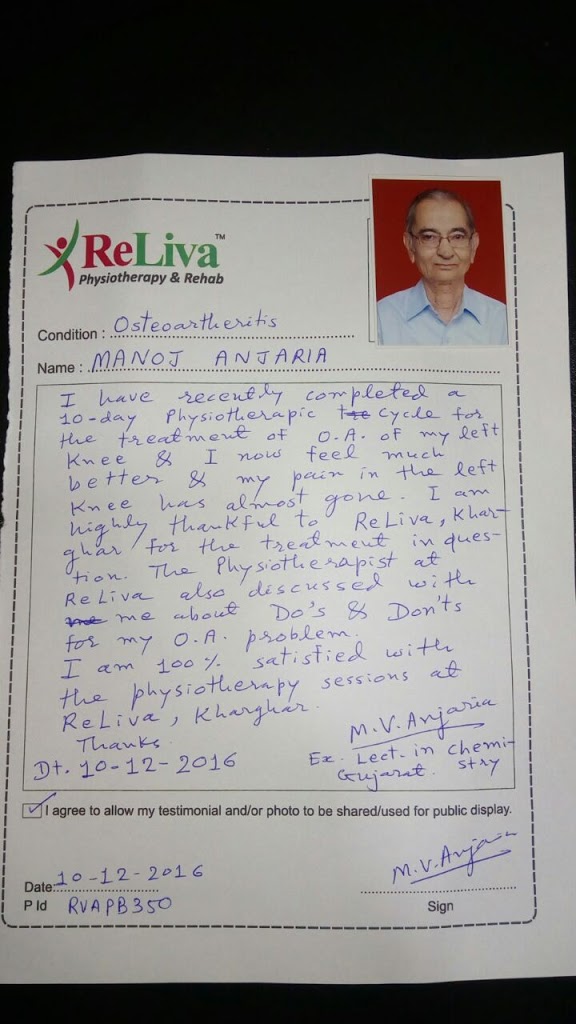 ReLiva™
Physiotherapy & Rehab
Condition : Osteoartheritis
Name : MANOJ ANJARIA
I have recently completed a
10-day Physiotherapic Cycle for
the treatment of O.A. of my left
Knee & I now feel much
better & my pain in the left
Knee has almost gone. I am
highly thankful to ReLiva, Khar-
ghar for the treatment in ques-
tion. The Physiotherapist at
ReLiva also discussed with
me about Do's & Don'ts
for my O.A. problem.
I am 100% satisfied with
the physiotherapy sessions at
ReLiva, Kharghar.
Thanks.
M.V. Anjaria
Dt. 10-12-2016
Ex. Lect. in Chemi-
stry
Gujarat.
I agree to allow my testimonial and/or photo to be shared/used for public display.
M.V. Anjaria
Date: 10-12-2016
P Id RVAPB350
Sign